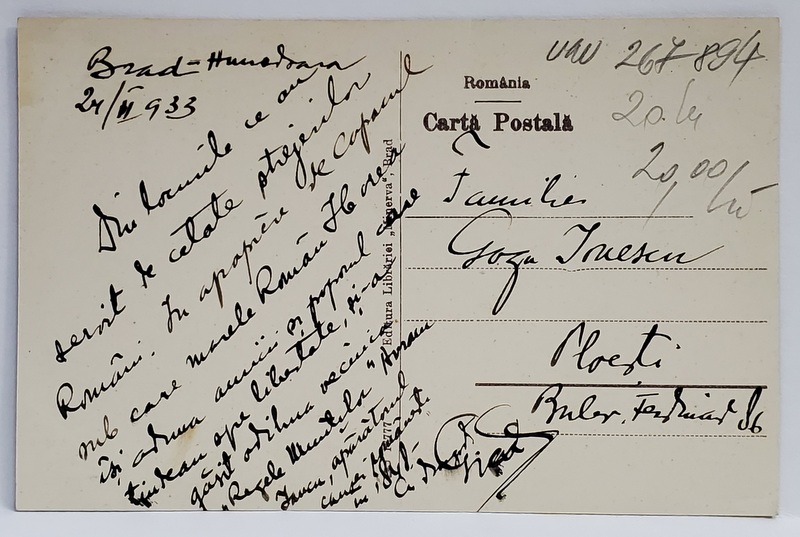 Brad-Hunedoara
24/II 933
Din locurile ce au
servit de cetate strejerilor
Români. În apropiere de copacul
sub care marele Român Horea
își aduna amicii și poporul care
tindeau spre libertate, și-a
găsit odihna vecinica
"Regele Munților" Avram
Iancu, apărătorul
cauzei românești
în
Cu drag
România
Cartă Postală
Familiei
Goga Ionescu
Ploești
Bulev. Ferdinand 86
Editura Librăriei „Minerva", Brad
267-894
20 lei
20,00 lei